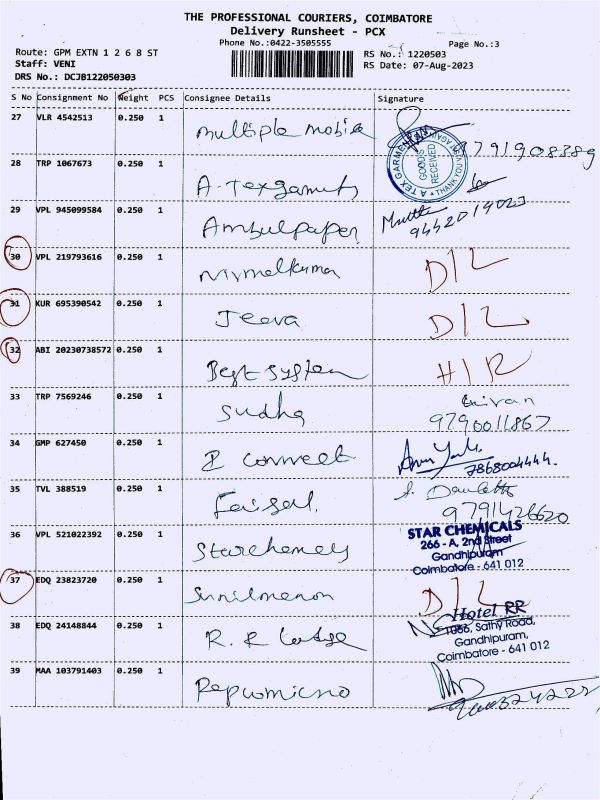 THE PROFESSIONAL COURIERS, COIMBATORE
Delivery Runsheet - PCX
Phone No.:0422-3505555
Page No.:3
Route: GPM EXTN 1 2 6 8 ST
Staff: VENI
DRS No.: DCJB122050303
RS No.: 1220503
RS Date: 07-Aug-2023
S No Consignment No Weight PCS Consignee Details Signature
27 VLR 4542513 0.250 1 multiple mobile
GOODS RECEIVED
A TEX GARMENTS
THANK YOU
28 TRP 1067673 0.250 1 A-Texgaments
29 VPL 945099584 0.250 1 Ambulpaper 9442019023
30 VPL 219793616 0.250 1 Nirmalkumar D/L
31 KUR 695390542 0.250 1 Jeeva D/L
32 ABI 20230738572 0.250 1 Best system H/R
33 TRP 7569246 0.250 1 Sudha 9790011867
34 GMP 627450 0.250 1 I connect 7868004444.
35 TVL 388519 0.250 1 Faisal. 9791426620
36 VPL 521022392 0.250 1 Starchemeys
STAR CHEMICALS
266 - A, 2nd Street
Gandhipuram
Coimbatore - 641 012
37 EDQ 23823720 0.250 1 Sunilmenon D/L
38 EDQ 24148844 0.250 1 R.R Lodge
Hotel RR
1066, Sathy Road,
Gandhipuram,
Coimbatore - 641 012
39 MAA 103791403 0.250 1